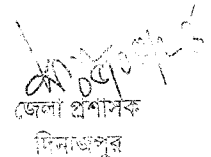 জেলা প্রশাসক
দিনাজপুর